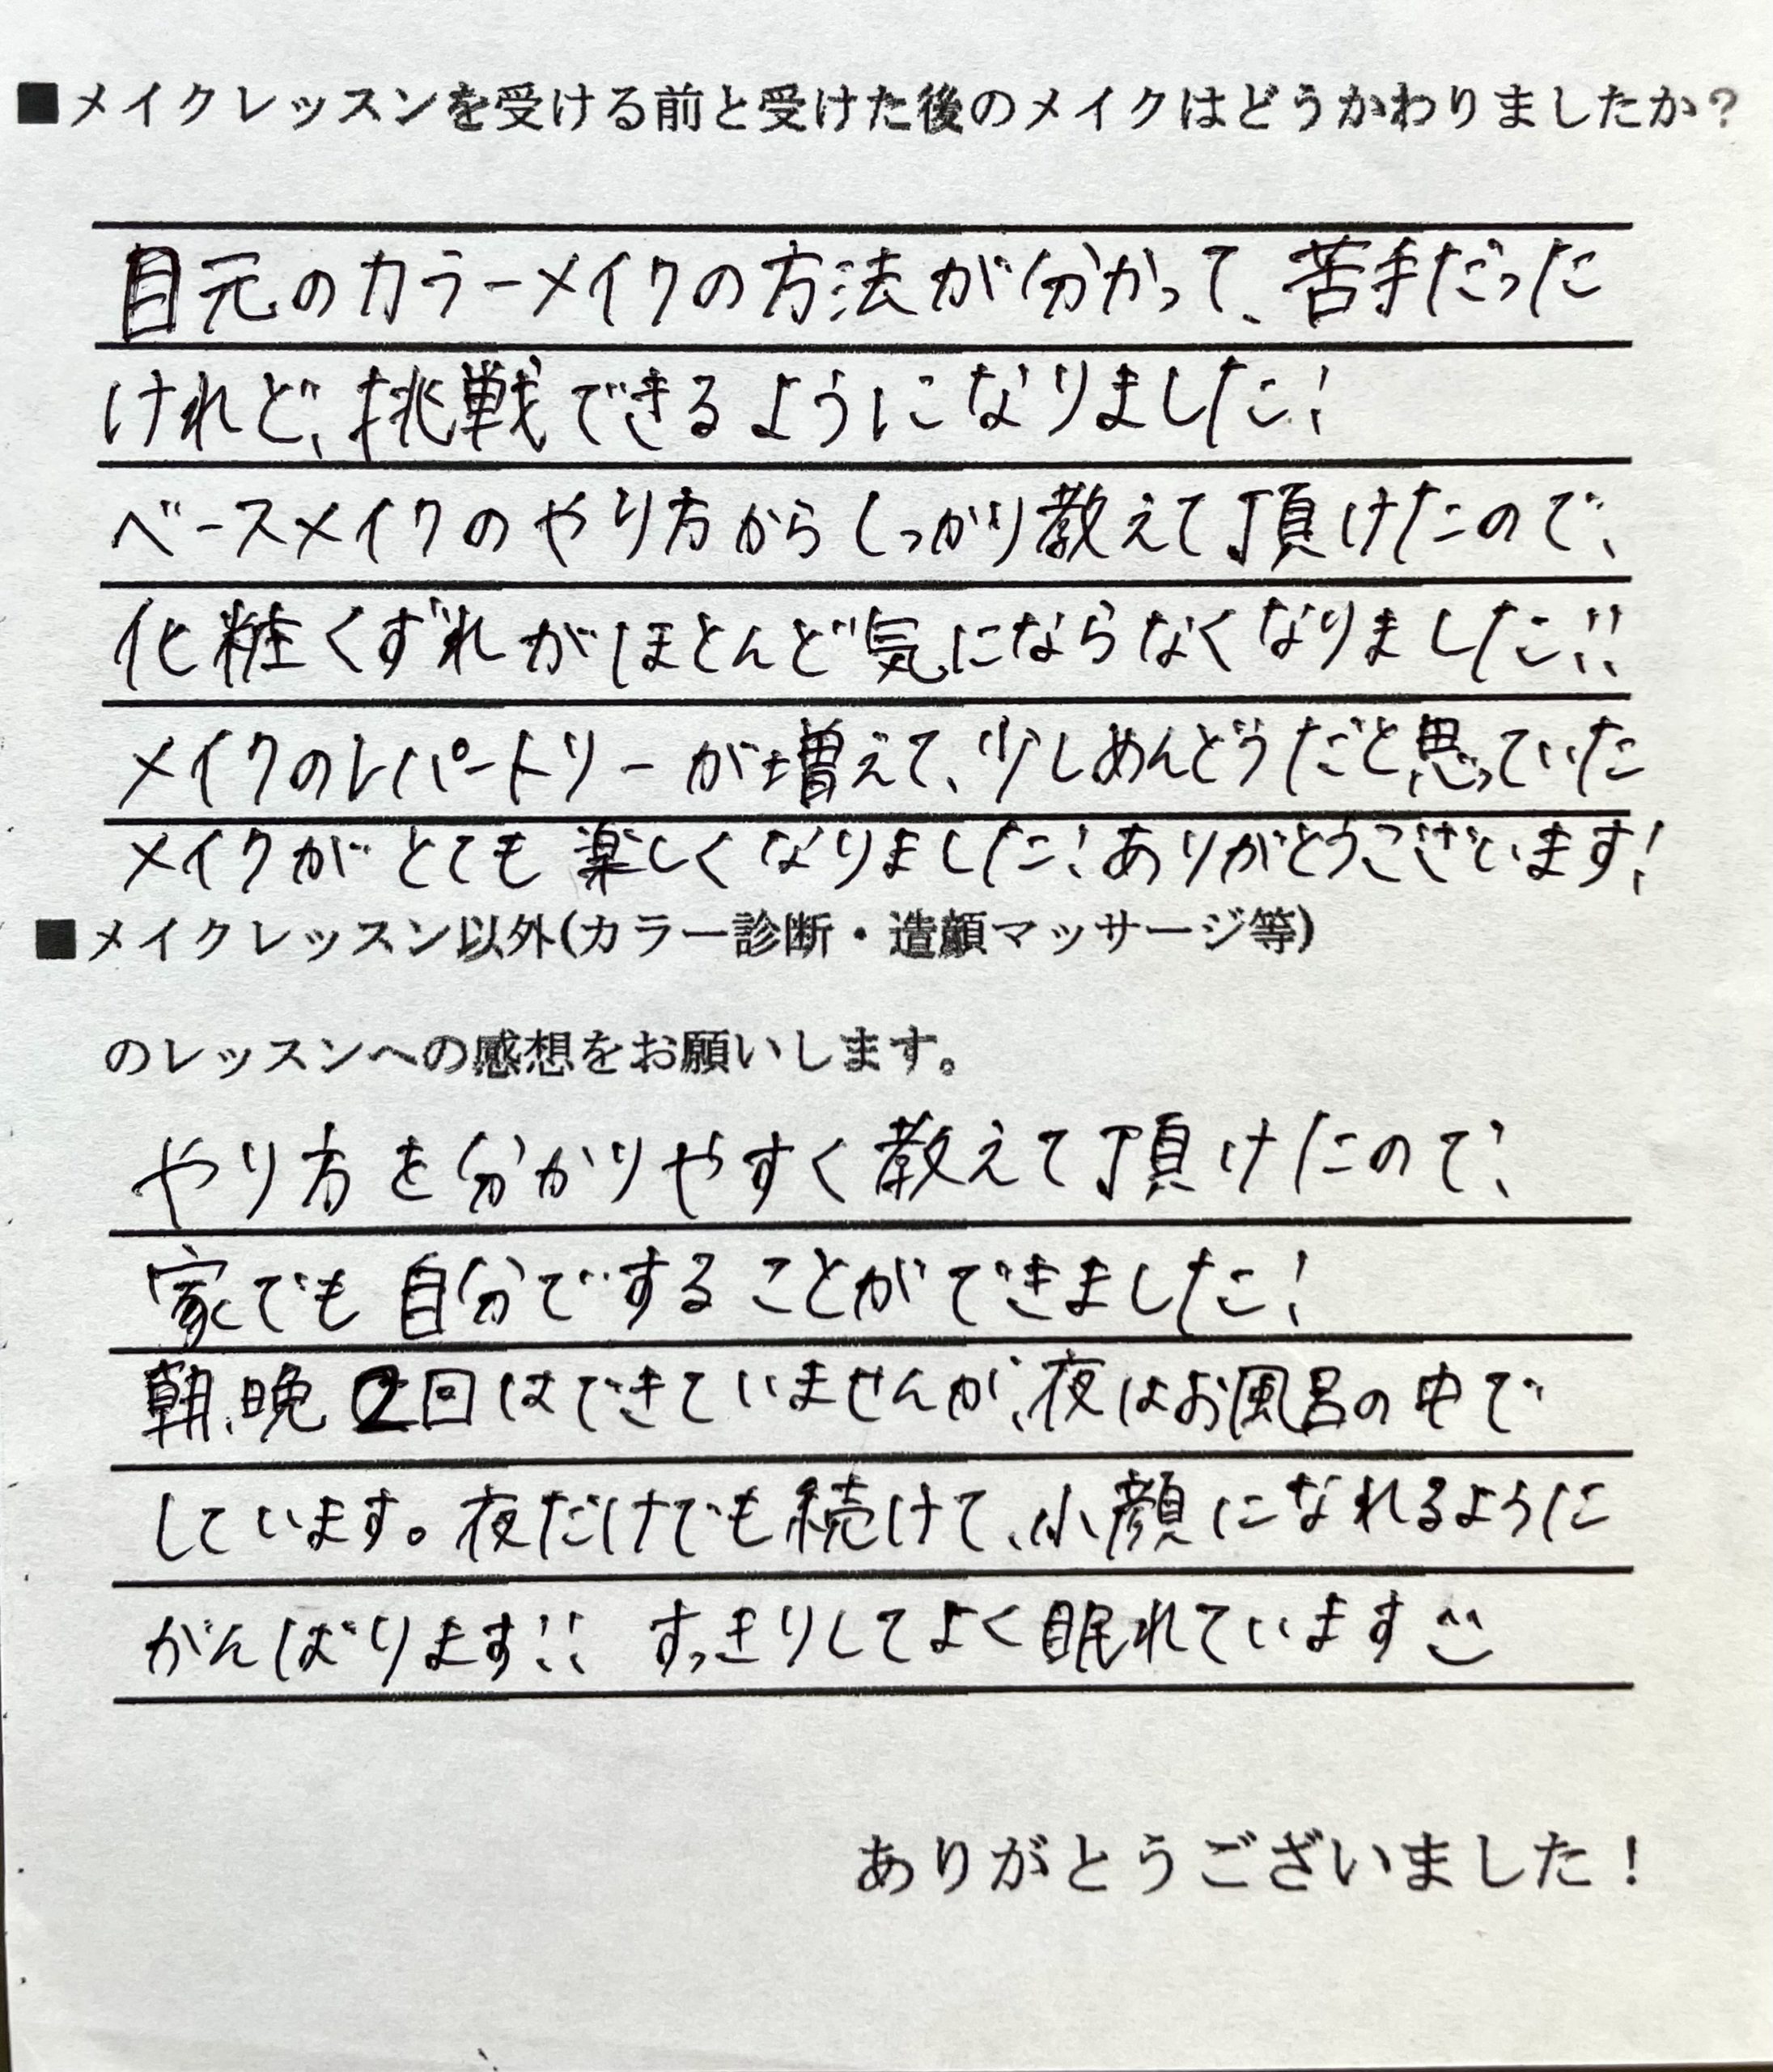 ■メイクレッスンを受ける前と受けた後のメイクはどうかわりましたか？
目元のカラーメイクの方法が分かって、苦手だった
けれど、挑戦できるようになりました！
ベースメイクのやり方からしっかり教えて頂けたので、
化粧くずれがほとんど気にならなくなりました!!
メイクのレパートリーが増えて、少しめんどうだと思っていた
メイクがとても楽しくなりました！ありがとうございます！
■メイクレッスン以外(カラー診断・造顔マッサージ等)
のレッスンへの感想をお願いします。
やり方を分かりやすく教えて頂けたので、
家でも自分ですることができました！
朝、晩2回はできていませんが、夜はお風呂の中で
しています。夜だけでも続けて、小顔になれるように
がんばります!! すっきりしてよく眠れています
ありがとうございました！